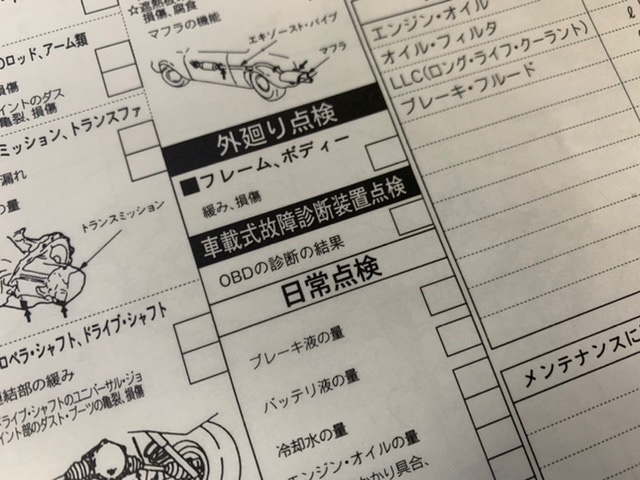 ☆遮熱板
損傷、腐食
マフラの機能
エキゾースト・パイプ
マフラ
ロッド、アーム類
損傷
イントのダス
亀裂、損傷
ミッション、トランスファ
漏れ
の量
トランスミッション
ロペラ・シャフト、ドライブ・シャフト
連結部の緩み
ドライブ・シャフトのユニバーサル・ジョ
イント部のダスト・ブーツの亀裂、損傷
外廻り点検
■フレーム、ボディー
緩み、損傷
車載式故障診断装置点検
OBDの診断の結果
日常点検
ブレーキ液の量
バッテリ液の量
冷却水の量
エンジン・オイルの量
かかり具合、
エンジン・オイル
オイル・フィルタ
LLC(ロング・ライフ・クーラント)
ブレーキ・フルード
ℓ
メンテナンスに